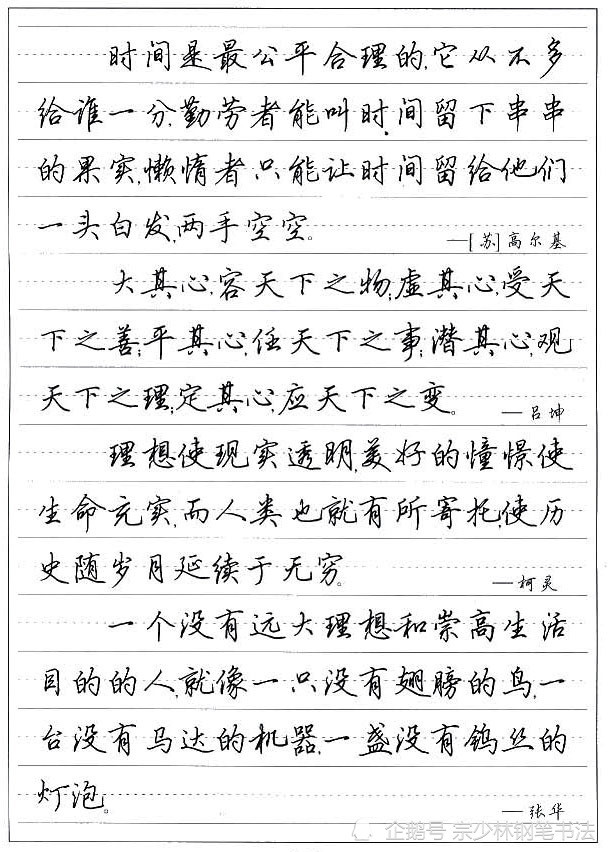 时间是最公平合理的,它从不多
给谁一分,勤劳者能叫时间留下串串
的果实,懒惰者只能让时间留给他们
一头白发,两手空空。
—[苏]高尔基
大其心,容天下之物;虚其心,受天
下之善;平其心,任天下之事;潜其心,观
天下之理;定其心,应天下之变。
—吕坤
理想使现实透明,美好的憧憬使
生命充实,而人类也就有所寄托,使历
史随岁月延续于无穷。
—柯灵
一个没有远大理想和崇高生活
目的的人,就像一只没有翅膀的鸟,一
台没有马达的机器,一盏没有钨丝的
灯泡。
—张华
企鹅号 宗少林钢笔书法